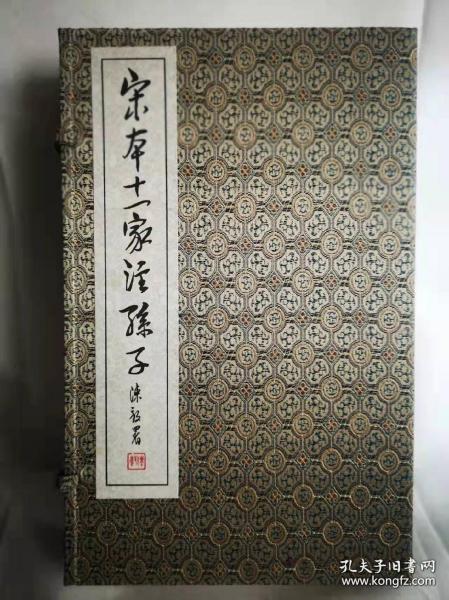 宋本十一家注孫子
陳毅署
孔夫子旧书网
www.kongfz.com